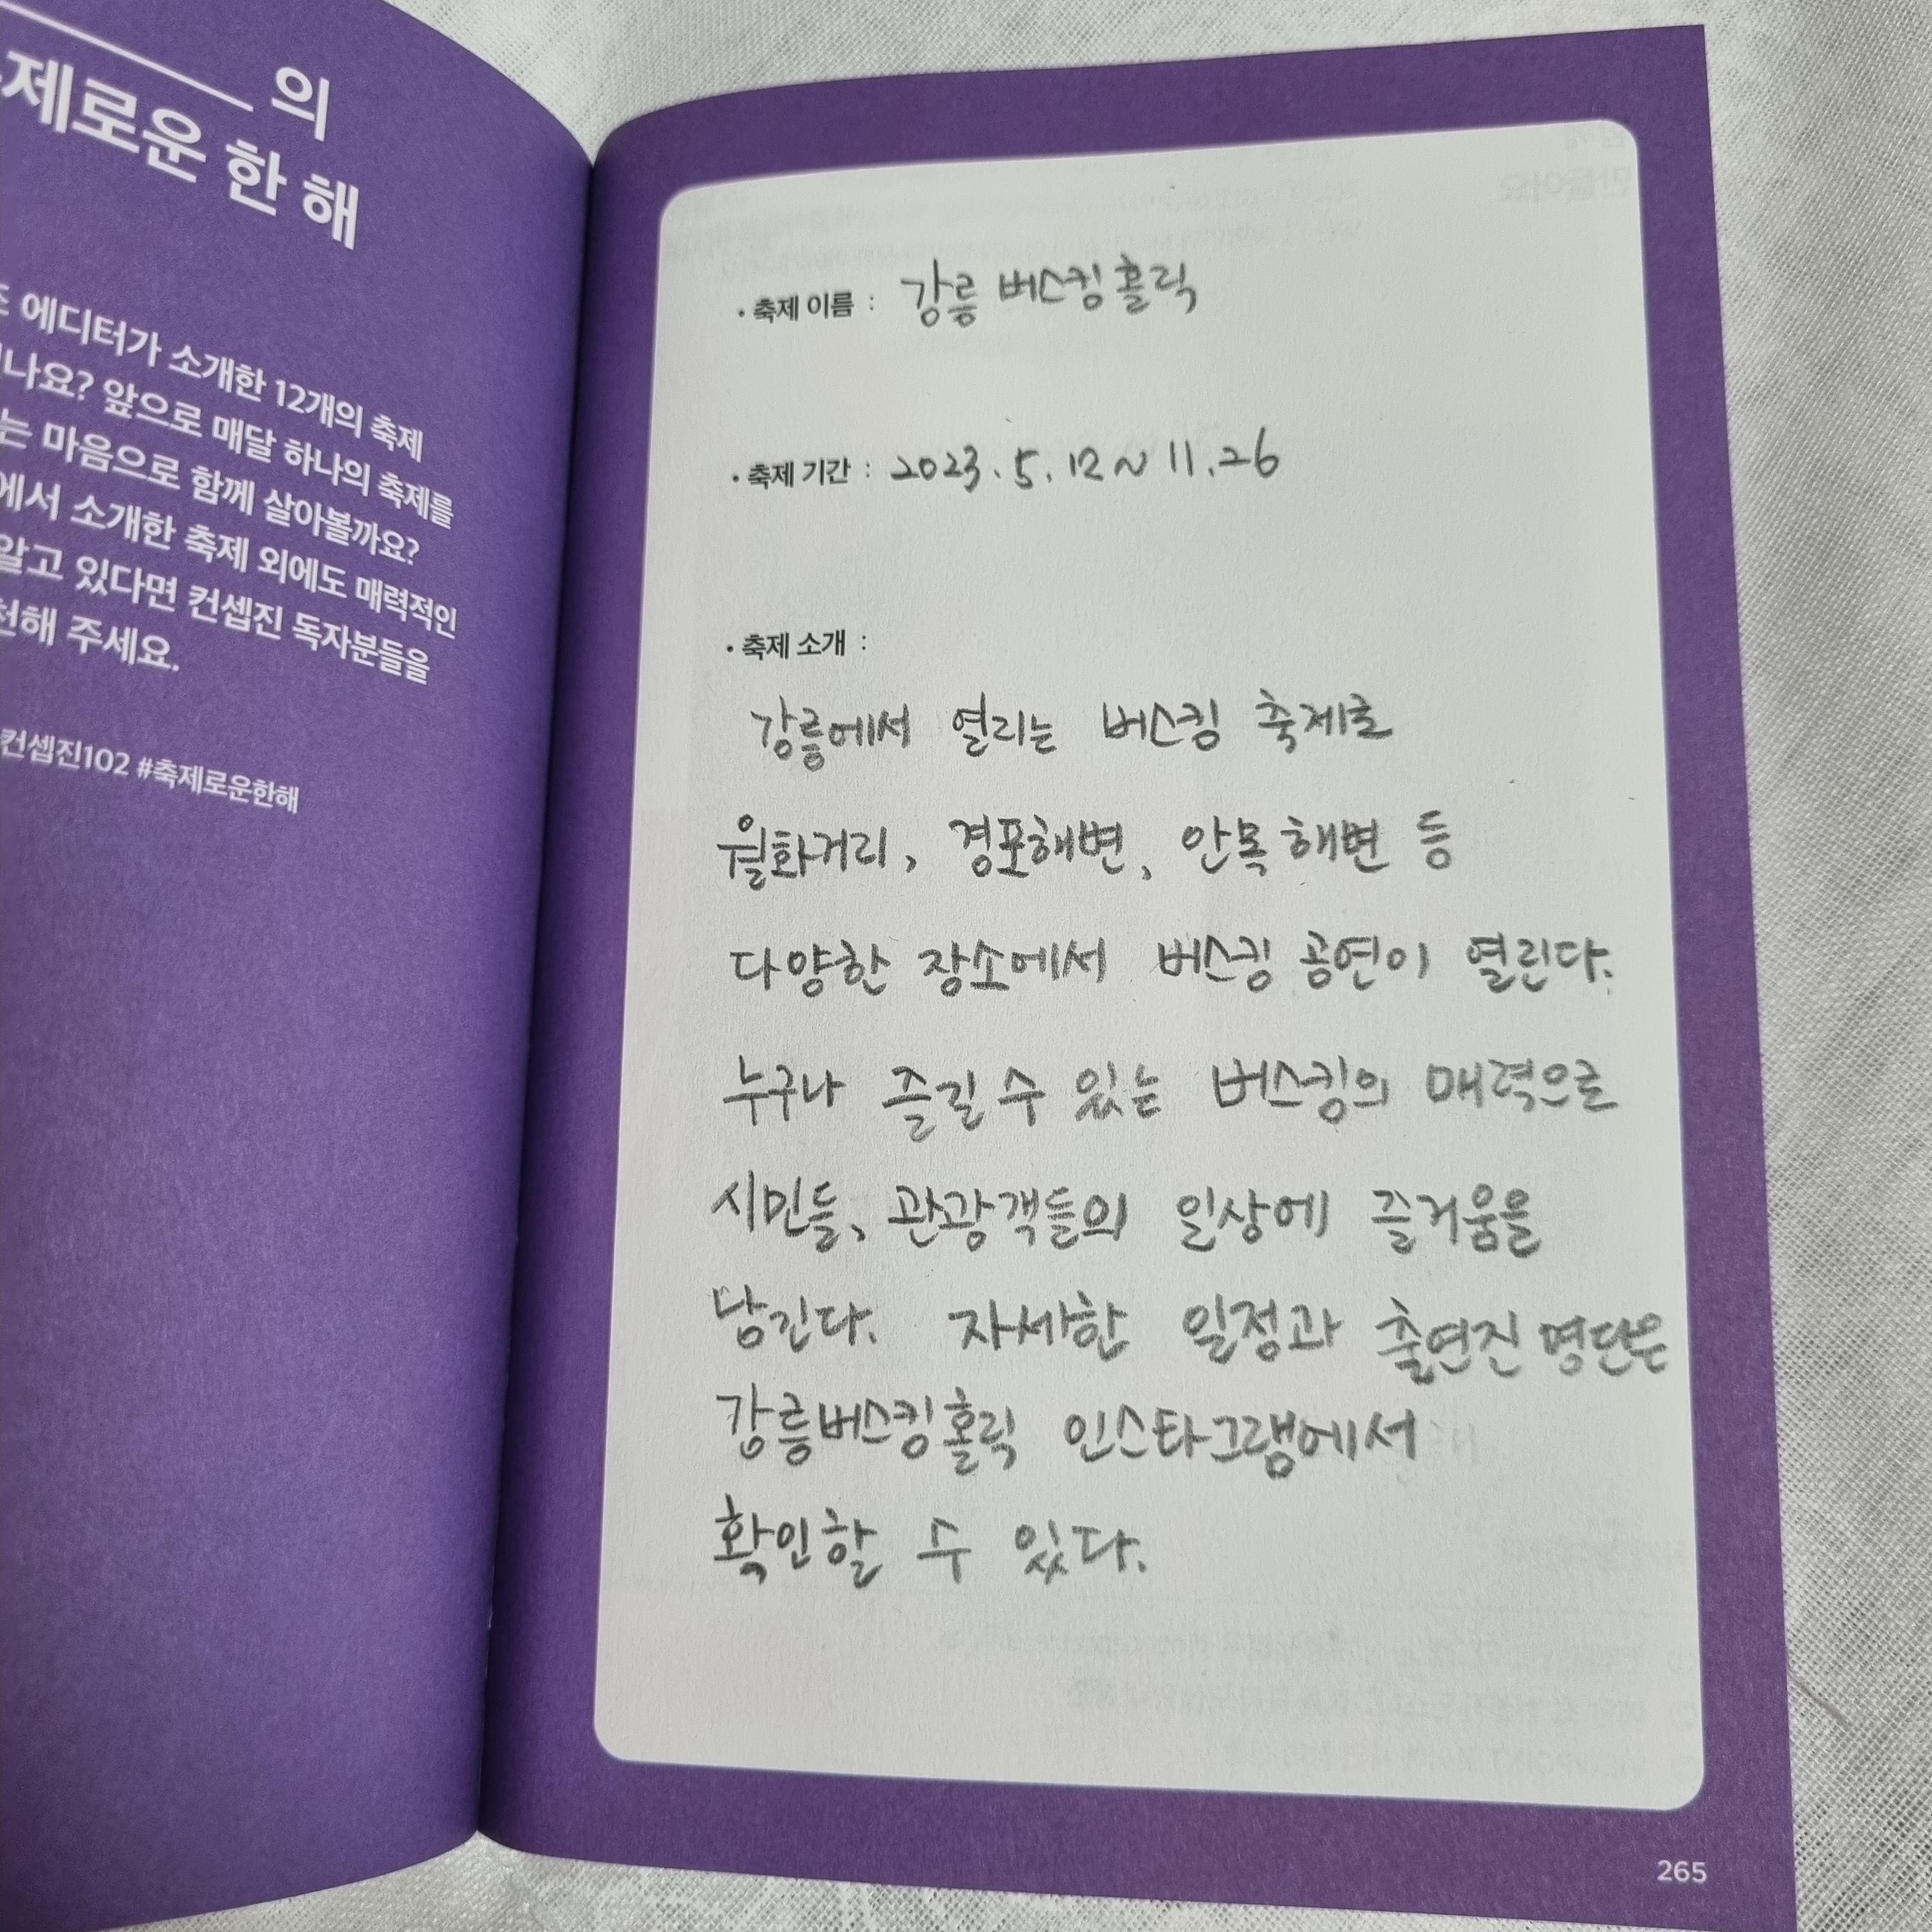 의
제로운 한 해
에디터가 소개한 12개의 축제
나요? 앞으로 매달 하나의 축제를
는 마음으로 함께 살아볼까요?
에서 소개한 축제 외에도 매력적인
알고 있다면 컨셉진 독자분들을
천해 주세요.
컨셉진102 #축제로운한해
• 축제 이름 : 강릉 버스킹 홀릭
• 축제 기간 : 2023. 5. 12 ~ 11. 26
• 축제 소개 :
강릉에서 열리는 버스킹 축제로
월화거리, 경포해변, 안목해변 등
다양한 장소에서 버스킹 공연이 열린다.
누구나 즐길 수 있는 버스킹의 매력으로
시민들, 관광객들의 일상에 즐거움을
남긴다. 자세한 일정과 출연진 명단은
강릉버스킹홀릭 인스타그램에서
확인할 수 있다.
265